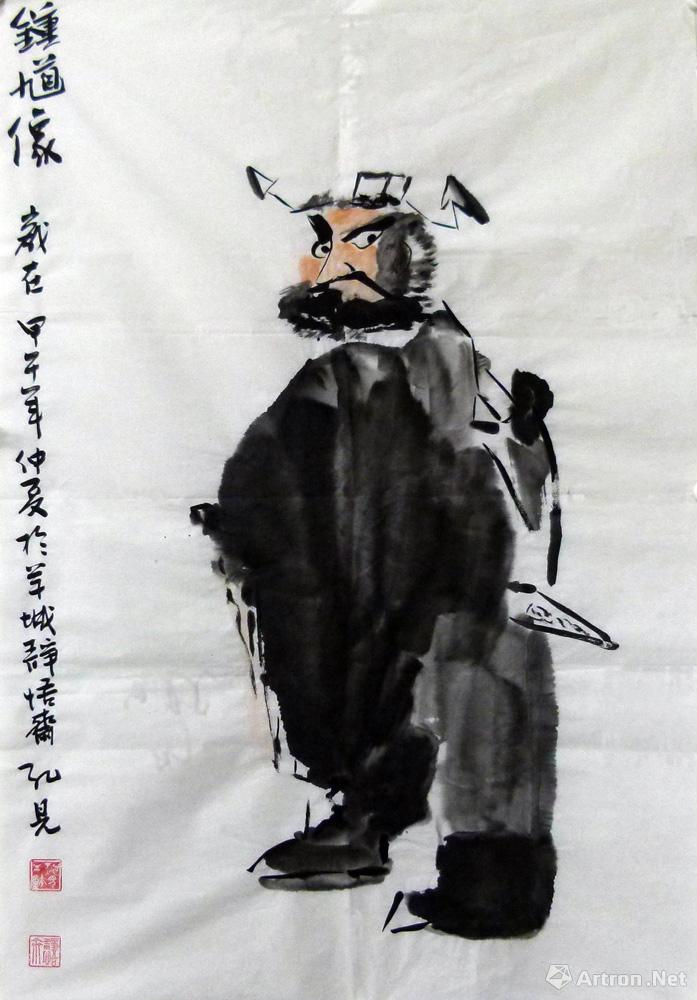 鍾馗像 歲在甲午年仲夏於羊城靜悟齋 孔見
Artron.Net